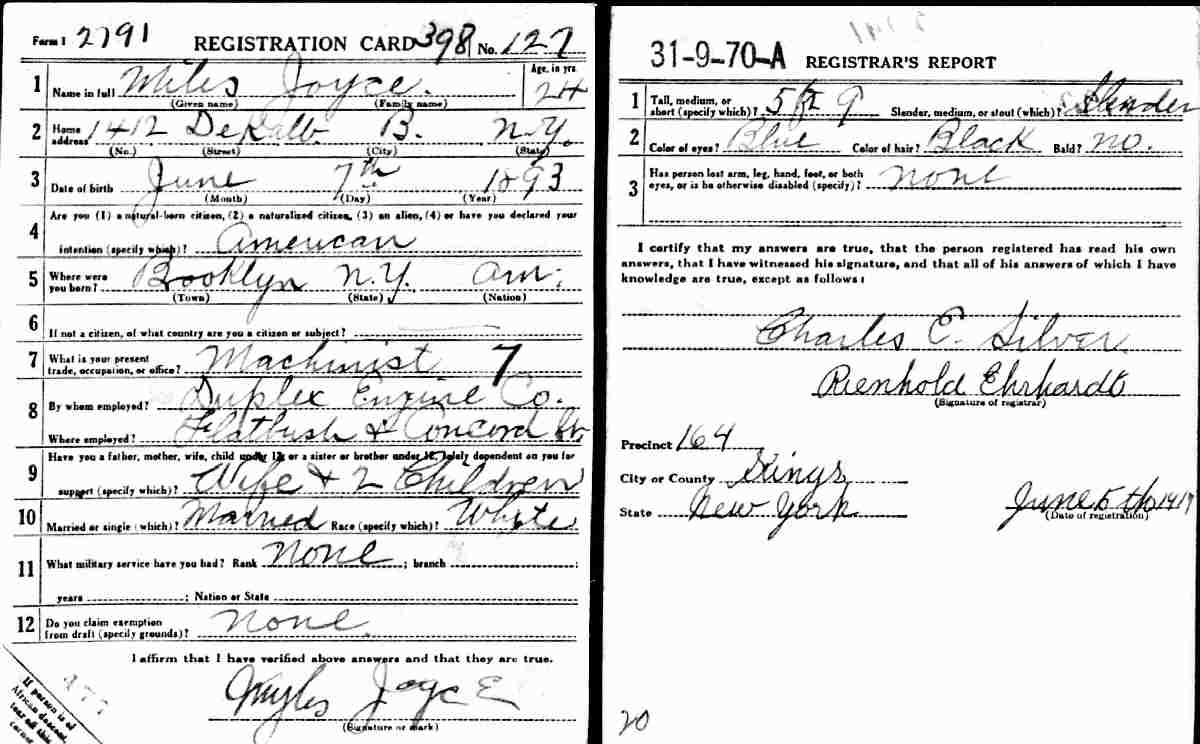 Form 1 2791 REGISTRATION CARD 398 No. 127
1 Name in full Miles Joyce. Age, in yrs. 24
(Given name) (Family name)
2 Home address 1412 DeKalb B. N.Y.
(No.) (Street) (City) (State)
3 Date of birth June 7th 1893
(Month) (Day) (Year)
Are you (1) a natural-born citizen, (2) a naturalized citizen, (3) an alien, (4) or have you declared your
4 intention (specify which)? American
5 Where were you born? Brooklyn N.Y. Am.
(Town) (State) (Nation)
6 If not a citizen, of what country are you a citizen or subject?
7 What is your present trade, occupation, or office? Machinist 7
8 By whom employed? Duplex Engine Co.
Where employed? Flatbush & Concord St.
9 Have you a father, mother, wife, child under 12, or a sister or brother under 12, solely dependent on you for
support (specify which)? Wife & 2 Children
10 Married or single (which)? Married Race (specify which)? White
11 What military service have you had? Rank None ; branch ;
years ; Nation or State
12 Do you claim exemption from draft (specify grounds)? None.
I affirm that I have verified above answers and that they are true.
Myles Joyce
(Signature or mark)
If person is of
African descent,
tear off this
corner
31-9-70-A REGISTRAR'S REPORT
1 Tall, medium, or short (specify which)? 5 ft 9 Slender, medium, or stout (which)? Slender
2 Color of eyes? Blue Color of hair? Black Bald? No.
3 Has person lost arm, leg, hand, foot, or both eyes, or is he otherwise disabled (specify)? None
I certify that my answers are true, that the person registered has read his own
answers, that I have witnessed his signature, and that all of his answers of which I have
knowledge are true, except as follows:
Charles E. Silver
Rienhold Ehrhardt
(Signature of registrar)
Precinct 164
City or County Kings
State New York June 5th 1917
(Date of registration)
20